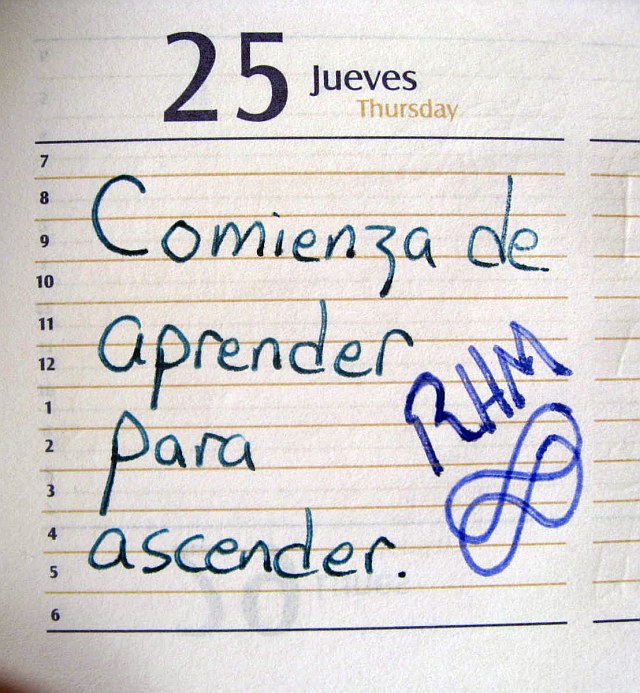 25 Jueves
Thursday
7
8
Comienza de
9
10
11
aprender
12
RHM
1
para
2
3
4
ascender.
5
6